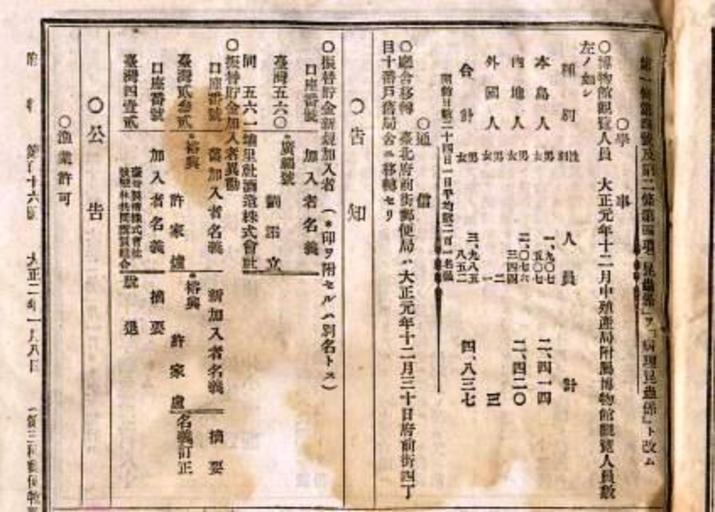 第一條第四號及第二條第四項「昆蟲係」ヲ「病理昆蟲係」ト改ム
○學事
○博物館觀覽人員　大正元年十二月中殖產局附屬博物館觀覽人員數
左ノ如シ
種別　性　人員　計
本島人　男　一、九〇七　女　五〇七　二、四一四
內地人　男　二、〇七六　女　三四四　二、四二〇
外國人　男　二　女　一　三
合計　男　三、九八五　女　八五二　四、八三七
開館日數二十四日一日平均二百一名
○通信
○廳舍移轉　臺北府前街郵便局ハ大正元年十二月三十日府前街四丁
目十番戶舊局舍ニ移轉セリ
○告知
○振替貯金新規加入者（＊印ヲ附セルハ別名トス）
口座番號　加入者名義
臺灣五六〇　＊廣綿號　劉　立
同　五六一　埔里社酒造株式會社
○振替貯金加入者異動
口座番號　舊加入者名義　新加入者名義　摘要
臺灣貳叁貳　＊裕興　許家爐　＊裕興　許家盧　名義訂正
口座番號　加入者名義　摘要
臺灣四壹貳　脫退
○公告
○漁業許可
大正二年一月八日